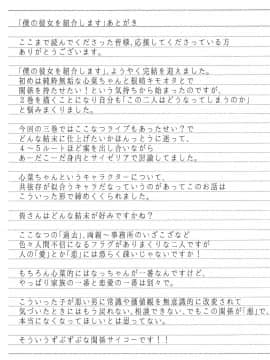 「僕の彼女を紹介します」あとがき
ここまで読んでくださった皆様、応援してくださっている方
ありがとうございます。
「僕の彼女を紹介します」、ようやく完結を迎えました。
初めは純粋無垢な心菜ちゃんと眼鏡キモオタとで
関係を持たせたい！という気持ちから始まったのですが、
２巻を描くことになり自分も「この二人はどうなってしまうのか」
と悩みまくりました。
今回の三巻ではここなつライブもあったせい？で
どんな結末に仕上げたいかほんっとうに迷って、
４～５ルートほど案を出し合いながら
あーだこーだ身内とサイゼリアで討論してました。
心菜ちゃんというキャラクターについて、
共依存が似合うキャラだなっていうのがあってこのお話は
こういった形で締めくくられました。
皆さんはどんな結末が好みですかね？
ここなつの「過去」、両親～事務所のいざこざなど
色々人間不信になるフラグがありまくりな二人ですが
人の「愛」とか「恋」には揺らぐ疎いじゃないですか！
もちろん心菜的にはなっちゃんが一番なんですけど、
やっぱり家族の一番と恋愛の一番は別々で。
こういった子が悪い男に常識や価値観を無意識的に改変されて
気づいたときにはもう戻れない、相談できない、でもこの関係が「悪」で、
本当になくなってほしいとは思ってない。
そういうずぶずぶな関係サイコーです！！